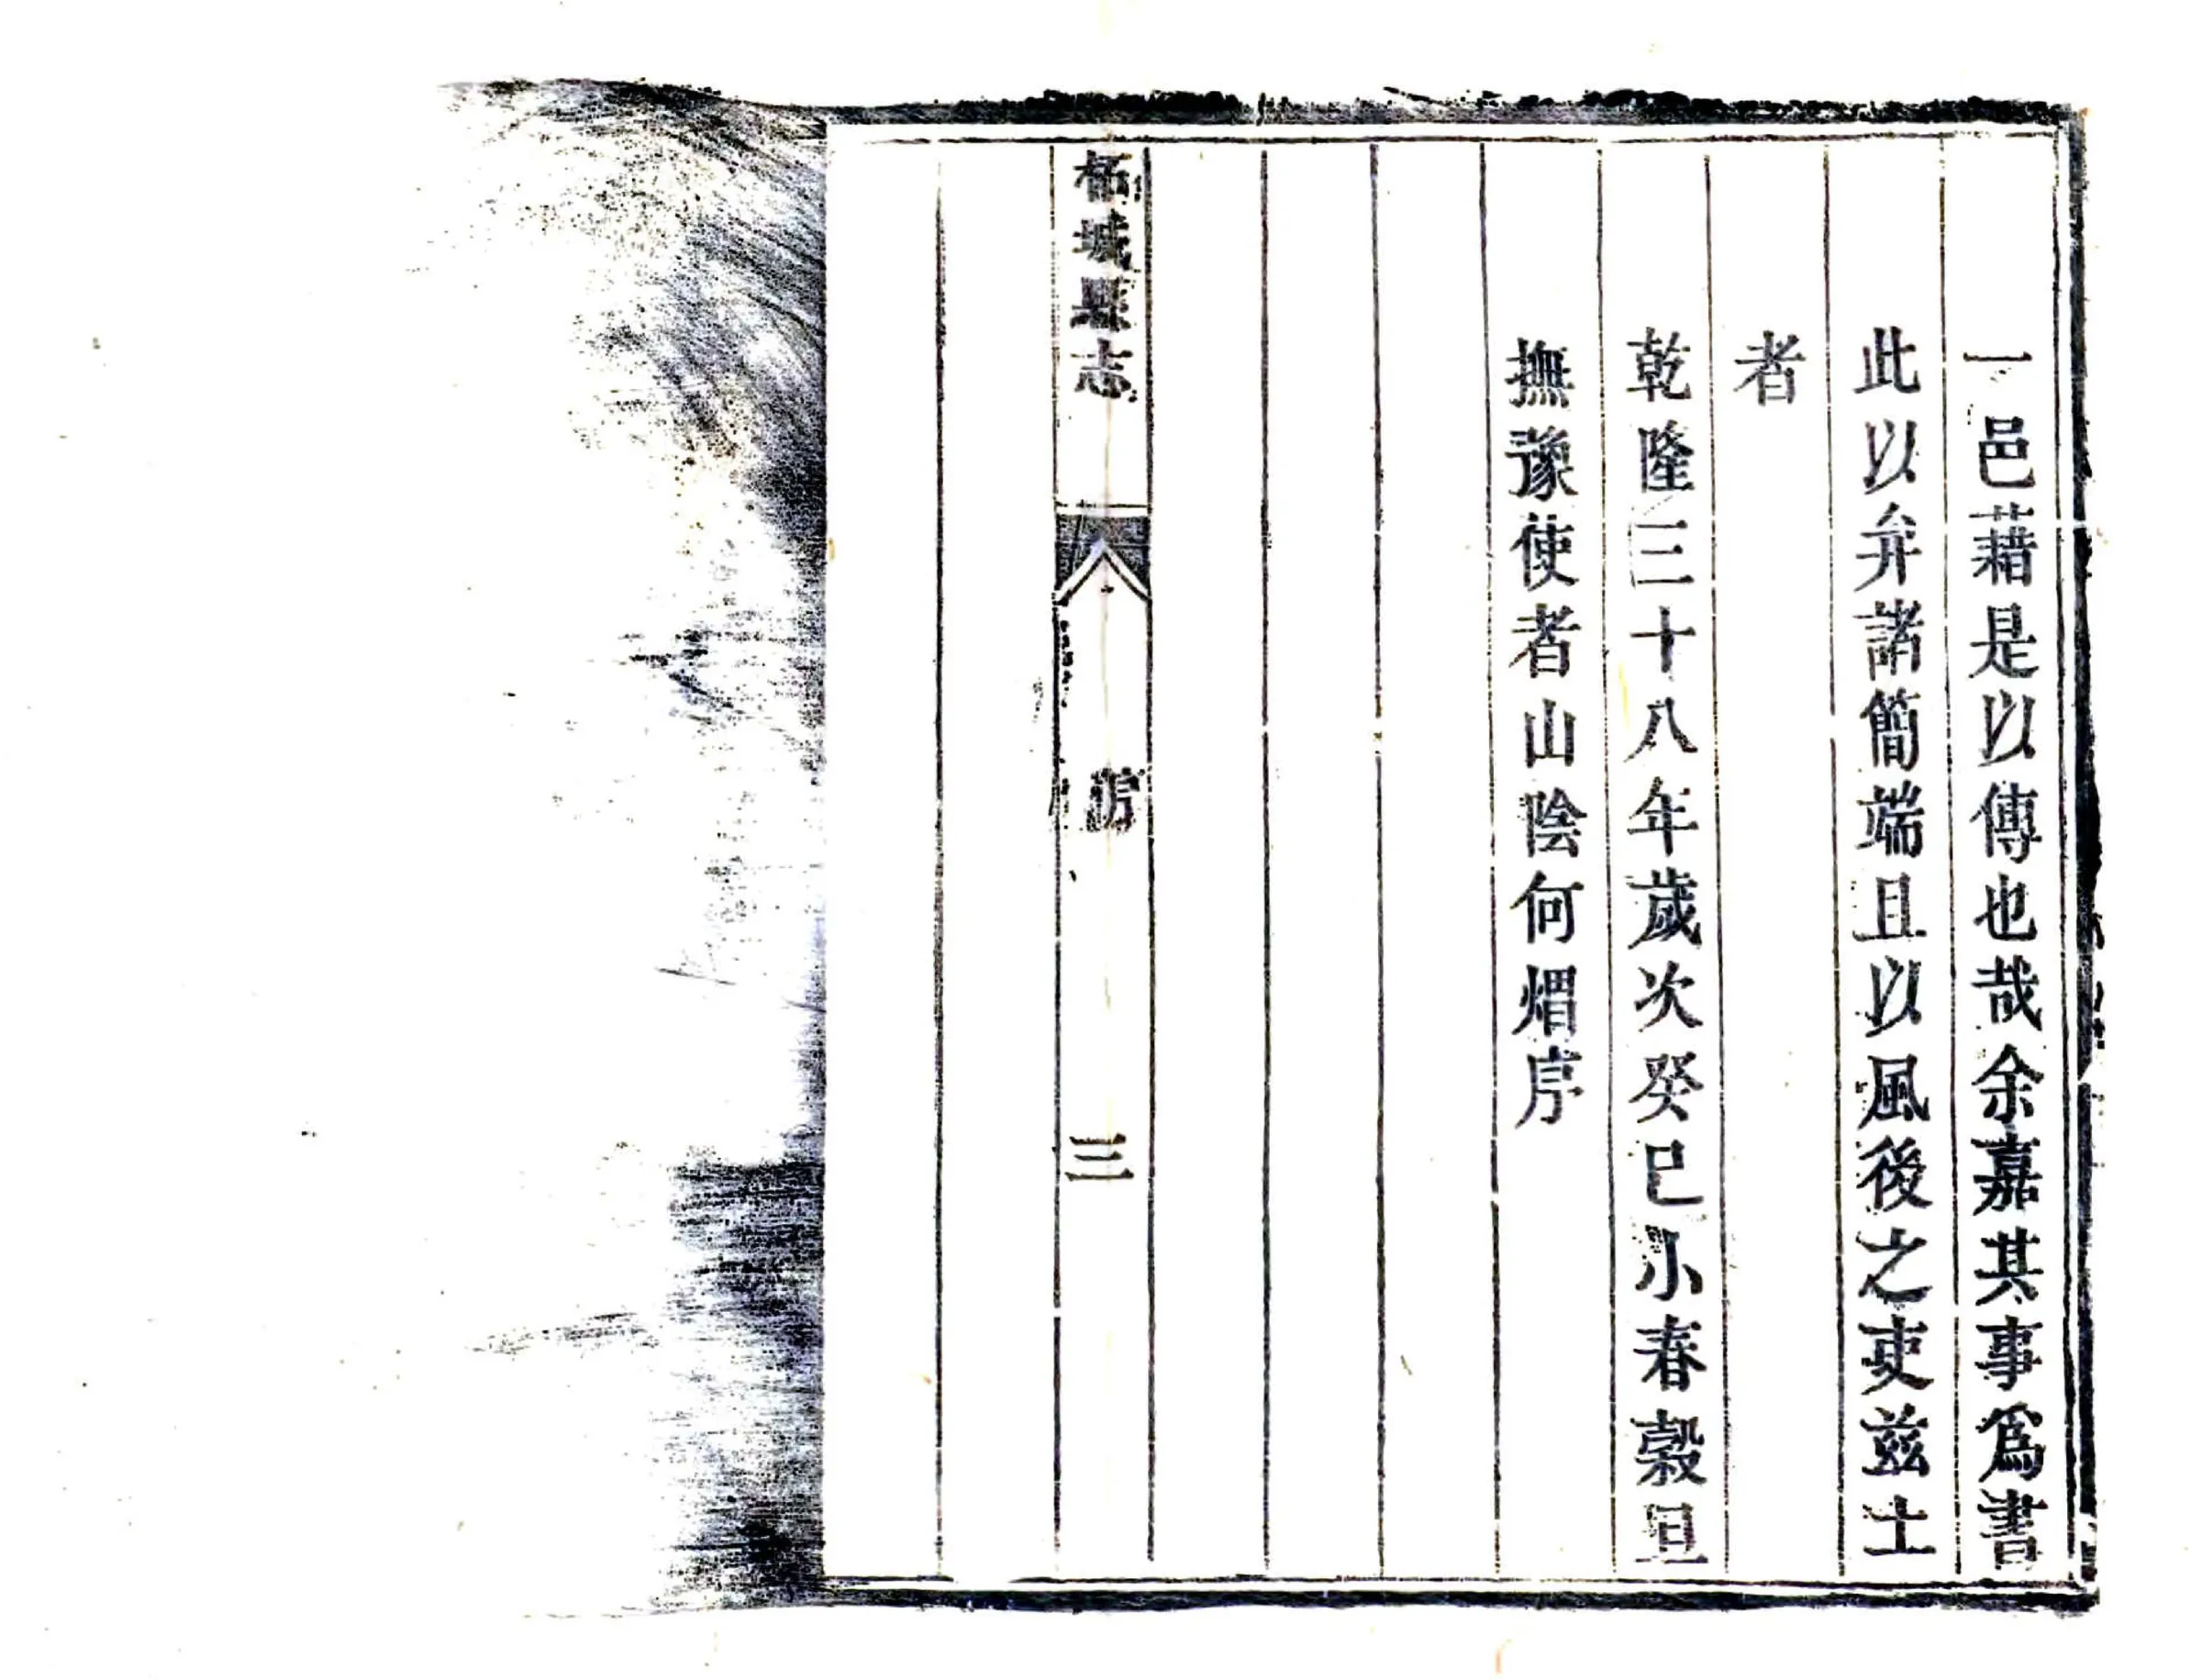 一邑藉是以傳也哉余嘉其事爲書
此以弁諸簡端且以風後之吏兹土
者
乾隆三十八年歲次癸巳小春穀旦
撫豫使者山陰何煟序
柘城縣志
三